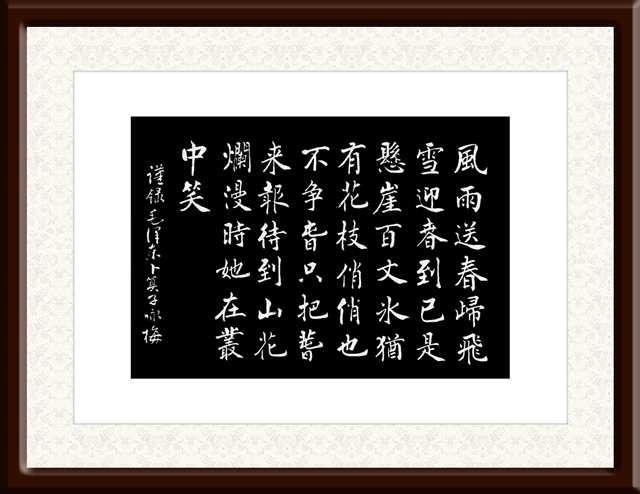 風雨送春歸飛
雪迎春到已是
懸崖百丈冰猶
有花枝俏俏也
不争春只把春
来報待到山花
爛漫時她在叢
中笑
謹録毛澤东卜算子咏梅